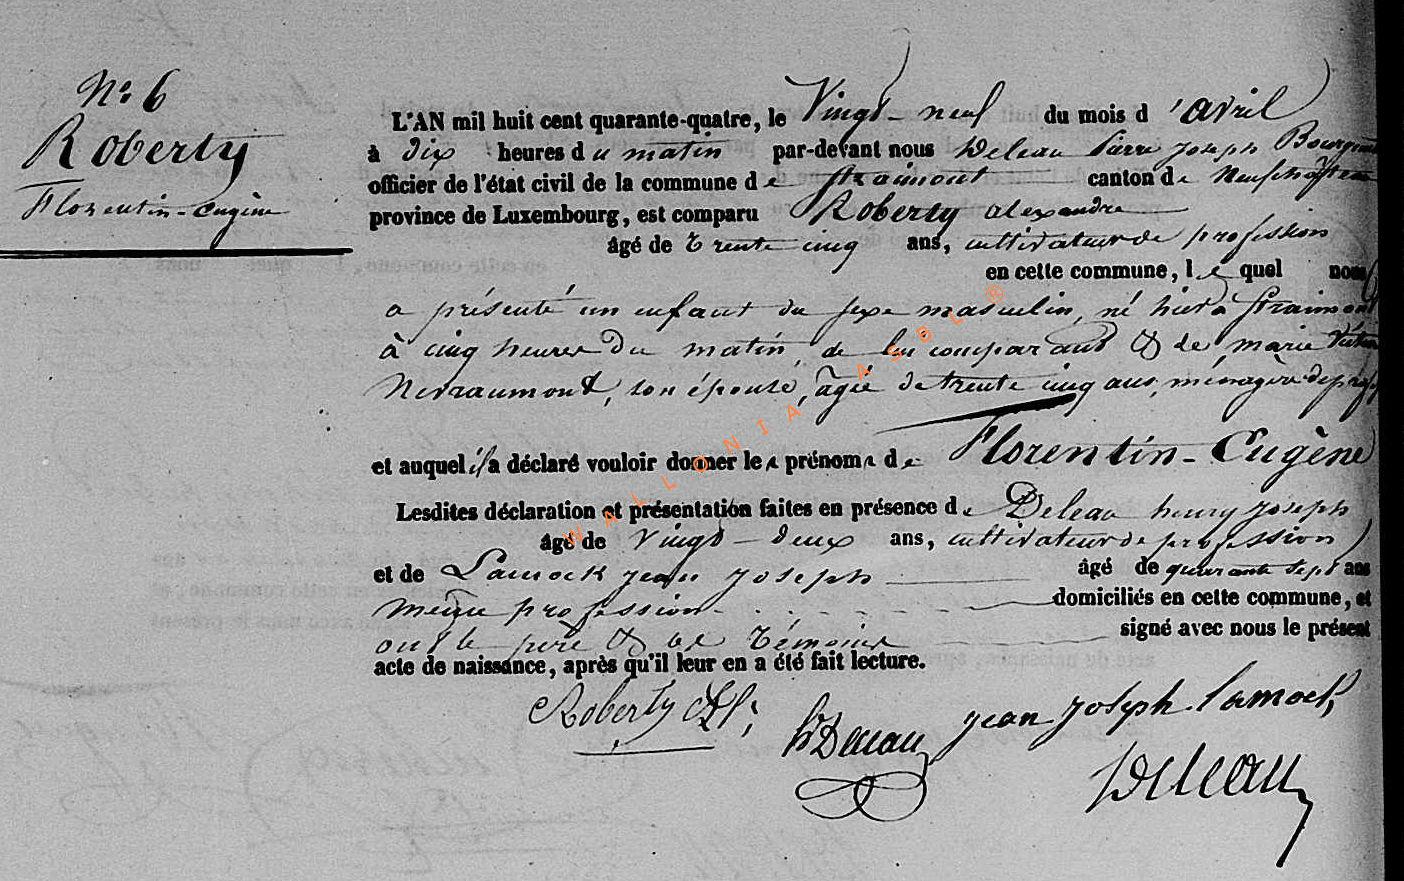 N: 6
Roberty
Florentin-Eugène
L'AN mil huit cent quarante-quatre, le Vingt-neuf du mois d'avril
à dix heures du matin par-devant nous Deleau Pierre Joseph Bourgmestre
officier de l'état civil de la commune de Straimont canton de Neufchâteau
province de Luxembourg, est comparu Roberty alexandre
âgé de trente cinq ans, cultivateur de profession
en cette commune, lequel nous
a présenté un enfant du sexe masculin, né hier à Straimont
à cinq heures du matin, de lui comparant & de marie
Nerraumont, son épouse, agée de trente cinq ans, ménagère de prof
et auquel il a déclaré vouloir donner les prénoms de Florentin-Eugène
Lesdites déclaration et présentation faites en présence de Deleau henry joseph
âgé de Vingt-deux ans, cultivateur de profession
et de Lamock jean joseph âgé de quarante sept ans
même profession domiciliés en cette commune, et
ont le père & les témoins signé avec nous le présent
acte de naissance, après qu'il leur en a été fait lecture.
Roberty Al;
h Deleau jean joseph lamock,
Deleau
WALLONIA ASBL ®